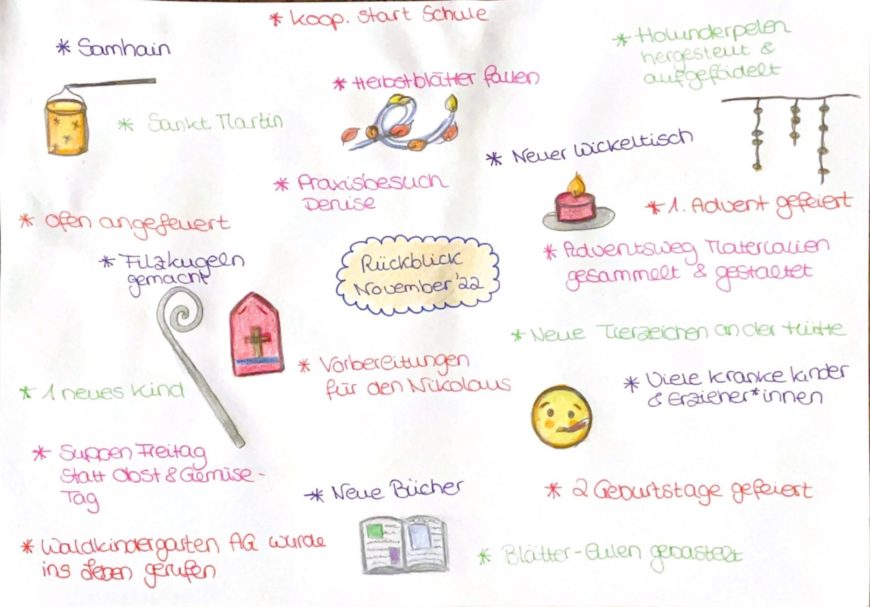 * Koop. Start Schule
* Samhain
* Holunderpelen
hergestellt &
aufgefädelt
* Herbstblätter fallen
* Sankt Martin
* Neuer Wickeltisch
* Praxisbesuch
Denise
* 1. Advent gefeiert
* Ofen angefeuert
* Adventsweg Materialien
gesammelt & gestaltet
* Filzkugeln
gemacht
Rückblick
November '22
* Neue Tierzeichen an der Hütte
* Vorbereitungen
für den Nikolaus
* Viele kranke Kinder
& Erzieher*innen
* 1 neues Kind
* Suppen Freitag
statt Obst & Gemüse-
Tag
* Neue Bücher
* 2 Geburtstage gefeiert
* Waldkindergarten AG wurde
ins Leben gerufen
* Blätter-Eulen gebastelt